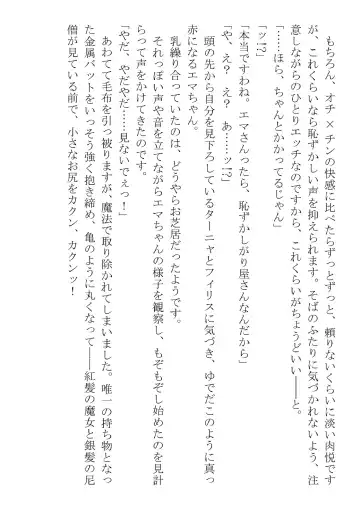 もちろん、オチ×チンの快感に比べたらずっとずっと、頼りないくらいに淡い肉悦です
が、これくらいなら恥ずかしい声を抑えられます。そばのふたりに気づかれないよう、注
意しながらのひとりエッチなのですから、これくらいがちょうどいい――と。
「……ほら、ちゃんとかかってるじゃん」
「ッ!?」
「本当ですわね。エマさんったら、恥ずかしがり屋さんなんだから」
「や、え? え? あ……ッ!?」
頭の先から自分を見下ろしているターニャとフィリスに気づき、ゆでだこのように真っ
赤になるエマちゃん。
乳繰り合っていたのは、どうやらお芝居だったようです。
それっぽい声や音を立てながらエマちゃんの様子を観察し、もぞもぞし始めたのを見計
らって声をかけてきたのです。
「やだ、やだやだ……見ないでぇっ!」
あわてて毛布を引っ被りますが、魔法で取り除かれてしまいました。唯一の持ち物となっ
た金属バットをいっそう強く抱き締め、亀のように丸くなって――紅髪の魔女と銀髪の尼
僧が見ている前で、小さなお尻をカクン、カクンッ!